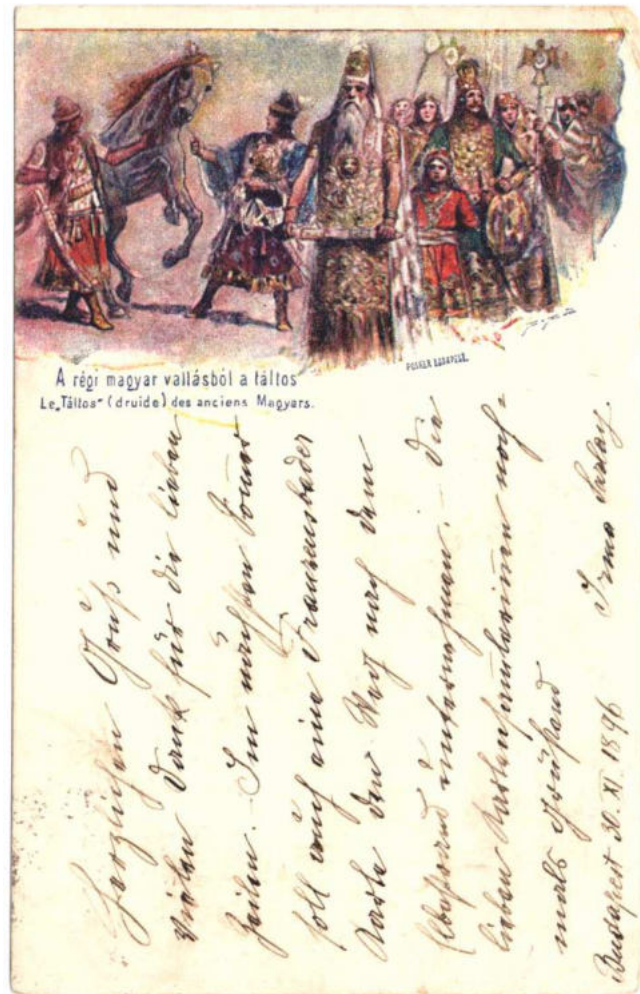 A régi magyar vallásból a táltos
Le „Táltos" (druide) des anciens Magyars.
POSNER BUDAPEST.
Herzlichen Gruß und
vielen Dank für die lieben
Zeilen. – Im nächsten Sommer
soll auch eine Franzensbader
Karte den Weg nach dem
unternehmen. – Die
lieben noch-
mals grüßend
Irma
Budapest 30. XI. 1896